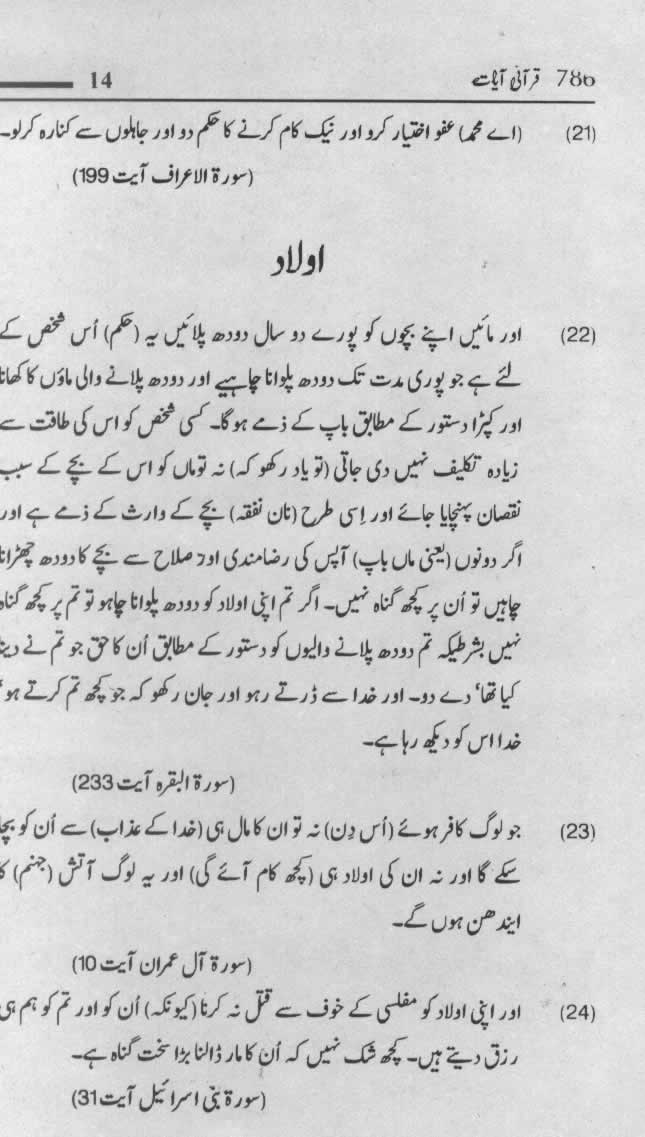 786 قرآنی آیات 14
(21) (اے محمدؐ) عفو اختیار کرو اور نیک کام کرنے کا حکم دو اور جاہلوں سے کنارہ کرلو۔
(سورۃ الاعراف آیت 199)
اولاد
(22) اور مائیں اپنے بچوں کو پورے دو سال دودھ پلائیں یہ (حکم) اُس شخص کے
لئے ہے جو پوری مدت تک دودھ پلوانا چاہیے اور دودھ پلانے والی ماؤں کا کھانا
اور کپڑا دستور کے مطابق باپ کے ذمے ہوگا۔ کسی شخص کو اس کی طاقت سے
زیادہ تکلیف نہیں دی جاتی (تو یاد رکھو کہ) نہ تو ماں کو اس کے بچے کے سبب
نقصان پہنچایا جائے اور اِسی طرح (نان نفقہ) بچے کے وارث کے ذمے ہے اور
اگر دونوں (یعنی ماں باپ) آپس کی رضامندی اور صلاح سے بچے کا دودھ چھڑانا
چاہیں تو اُن پر کچھ گناہ نہیں۔ اگر تم اپنی اولاد کو دودھ پلوانا چاہو تو تم پر کچھ گناہ
نہیں بشرطیکہ تم دودھ پلانے والیوں کو دستور کے مطابق اُن کا حق جو تم نے دینا
کیا تھا، دے دو۔ اور خدا سے ڈرتے رہو اور جان رکھو کہ جو کچھ تم کرتے ہو،
خدا اس کو دیکھ رہا ہے۔
(سورۃ البقرہ آیت 233)
(23) جو لوگ کافر ہوئے (اُس دِن) نہ تو ان کا مال ہی (خدا کے عذاب) سے اُن کو بچا
سکے گا اور نہ ان کی اولاد ہی (کچھ کام آئے گی) اور یہ لوگ آتش (جہنم) کا
ایندھن ہوں گے۔
(سورۃ آل عمران آیت 10)
(24) اور اپنی اولاد کو مفلسی کے خوف سے قتل نہ کرنا (کیونکہ) اُن کو اور تم کو ہم ہی
رزق دیتے ہیں۔ کچھ شک نہیں کہ اُن کا مار ڈالنا بڑا سخت گناہ ہے۔
(سورۃ بنی اسرائیل آیت 31)